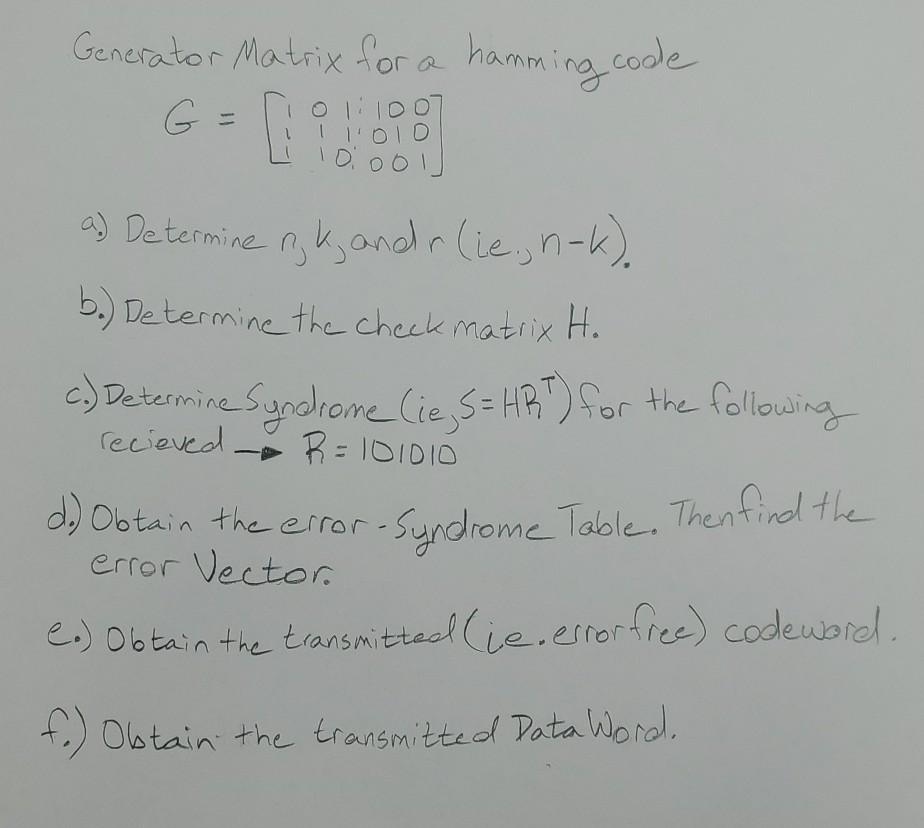 Generator Matrix for a hamming code
G = [1 0 1 ⋮ 1 0 0
1 1 1 ⋮ 0 1 0
1 1 0 ⋮ 0 0 1]
a.) Determine n, k, and r (ie., n-k).
b.) Determine the check matrix H.
c.) Determine Syndrome (ie, S = HRᵀ) for the following
recieved → R = 101010
d.) Obtain the error-Syndrome Table. Then find the
error Vector.
e.) Obtain the transmitted (ie. error free) codeword.
f.) Obtain the transmitted Data Word.